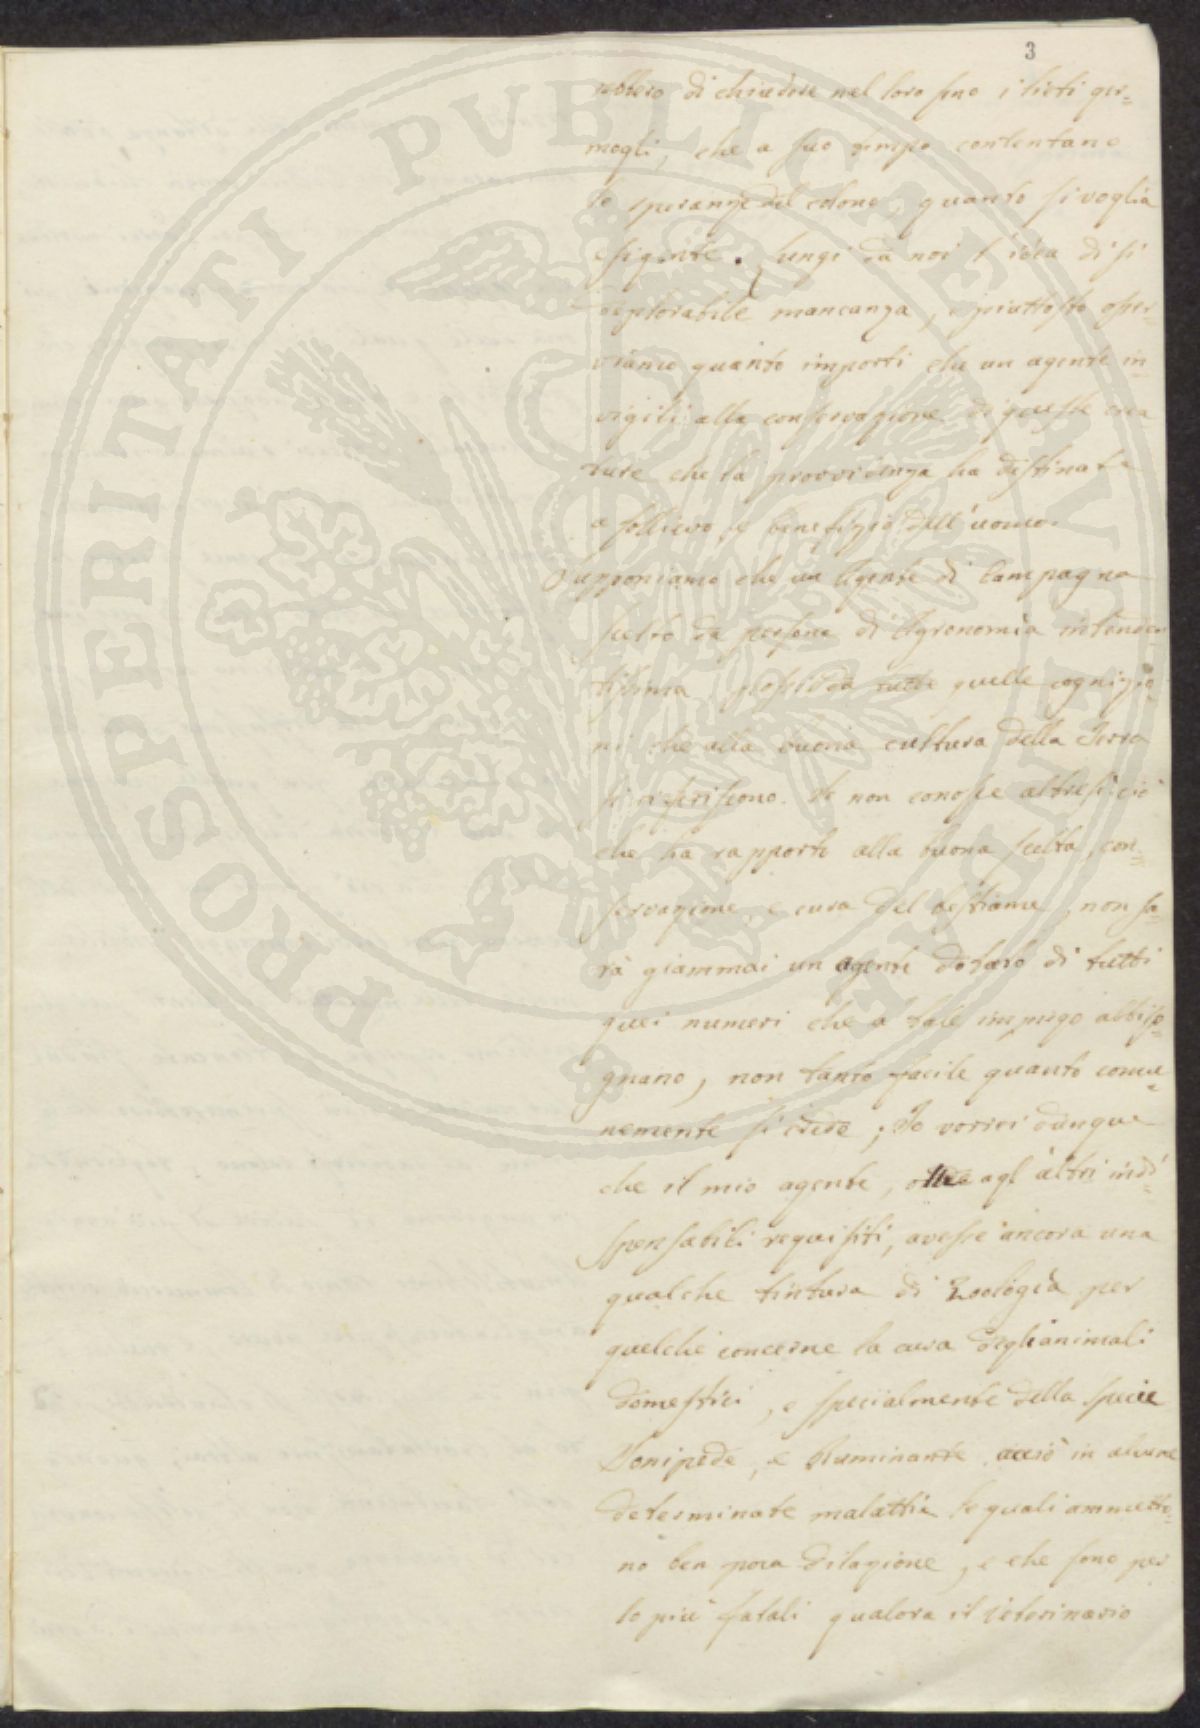 3
ebbero di chiudere nel loro seno i lieti ger=
mogli, che a suo tempo contentano
le speranze del colono, quanto si voglia
esigente. Lungi da noi l'idea di sì
deplorabile mancanza, e piuttosto osser=
viamo quanto importi che un agente in=
vigili alla conservazione di queste crea
ture che la provvidenza ha destinate
a sollievo, e benefizio dell'uomo.
Supponiamo che un Agente di Campagna
scelto da persona di Agronomia intenden
tissima possieda tutte quelle cognizio=
ni che alla buona cultura della Terra
si riferiscono. Se non conosce altresì ciò
che ha rapporto alla buona scelta, con=
servazione, e cura del bestiame, non sa=
rà giammai un agente dotato di tutti
quei numeri che a tale impiego abbiso=
gnano, non tanto facile quanto comu=
nemente si crede; Io vorrei dunque
che il mio agente, oltre agl'altri indi=
spensabili requisiti, avesse ancora una
qualche tintura di Zoologia per
quelche concerne la cura degli animali
domestici, e specialmente della specie
Sonipede, e Ruminante, acciò in alcune
determinate malattie le quali ammetto=
no ben poca dilazione, e che sono per
lo più fatali qualora il veterinario
PROSPERITATI PVBLICAE AVGENDAE